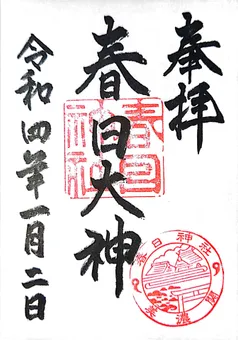 奉拝
春日大神
春日神社
令和四年一月二日
春日神社
美濃國